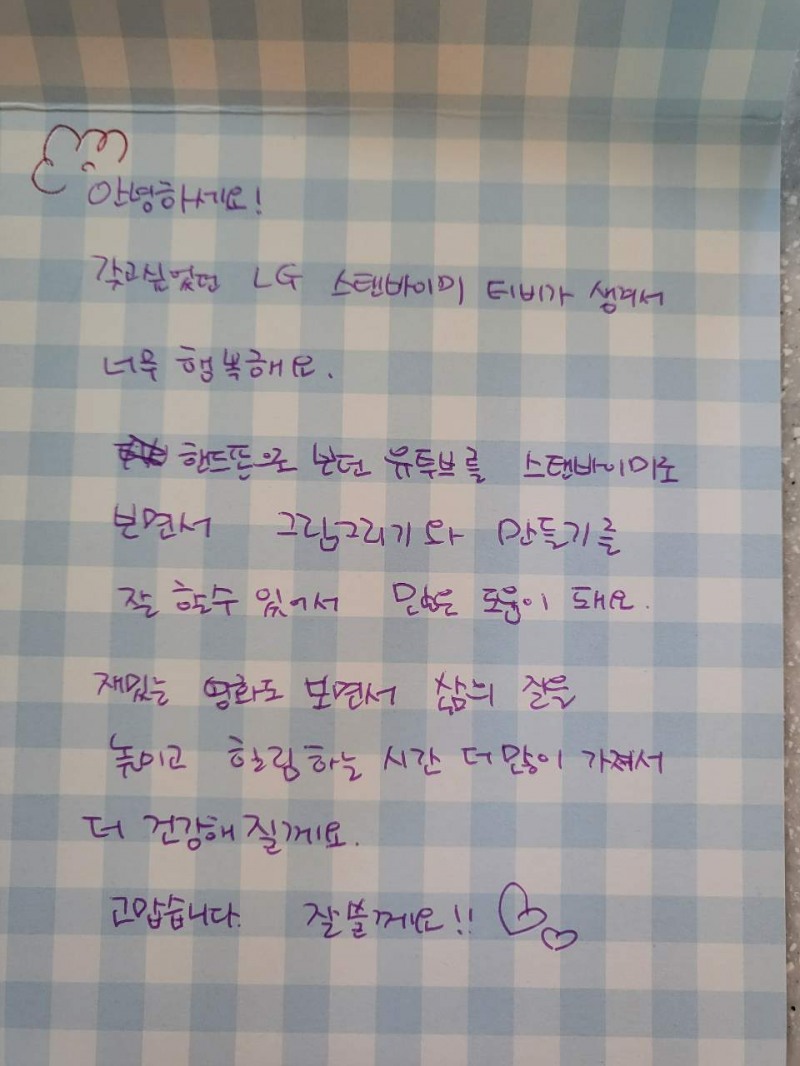 안녕하세요!
갖고싶었던 LG 스탠바이미 티비가 생겨서
너무 행복해요.
핸드폰으로 보던 유투브를 스탠바이미로
보면서 그림그리기와 만들기를
잘 할수 있어서 많은 도움이 돼요.
재밌는 영화도 보면서 삶의 질을
높이고 힐링하는 시간 더 많이 가져서
더 건강해 질게요.
고맙습니다. 잘볼게요!!